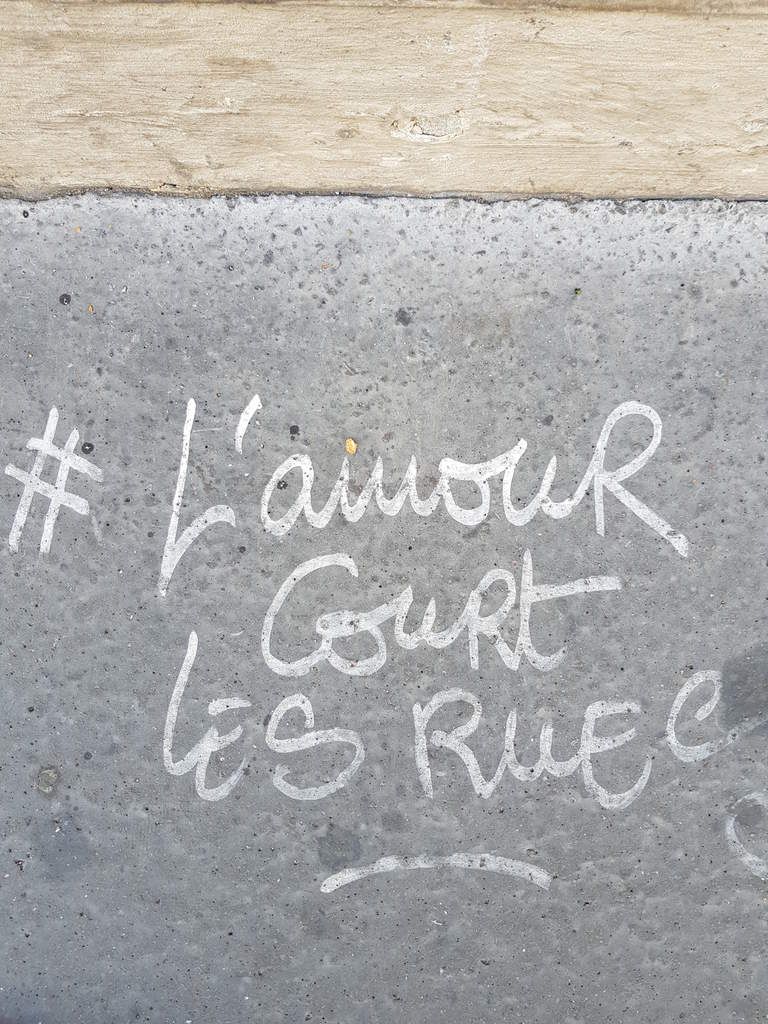 # L'amouR
CouRt
LES RUES